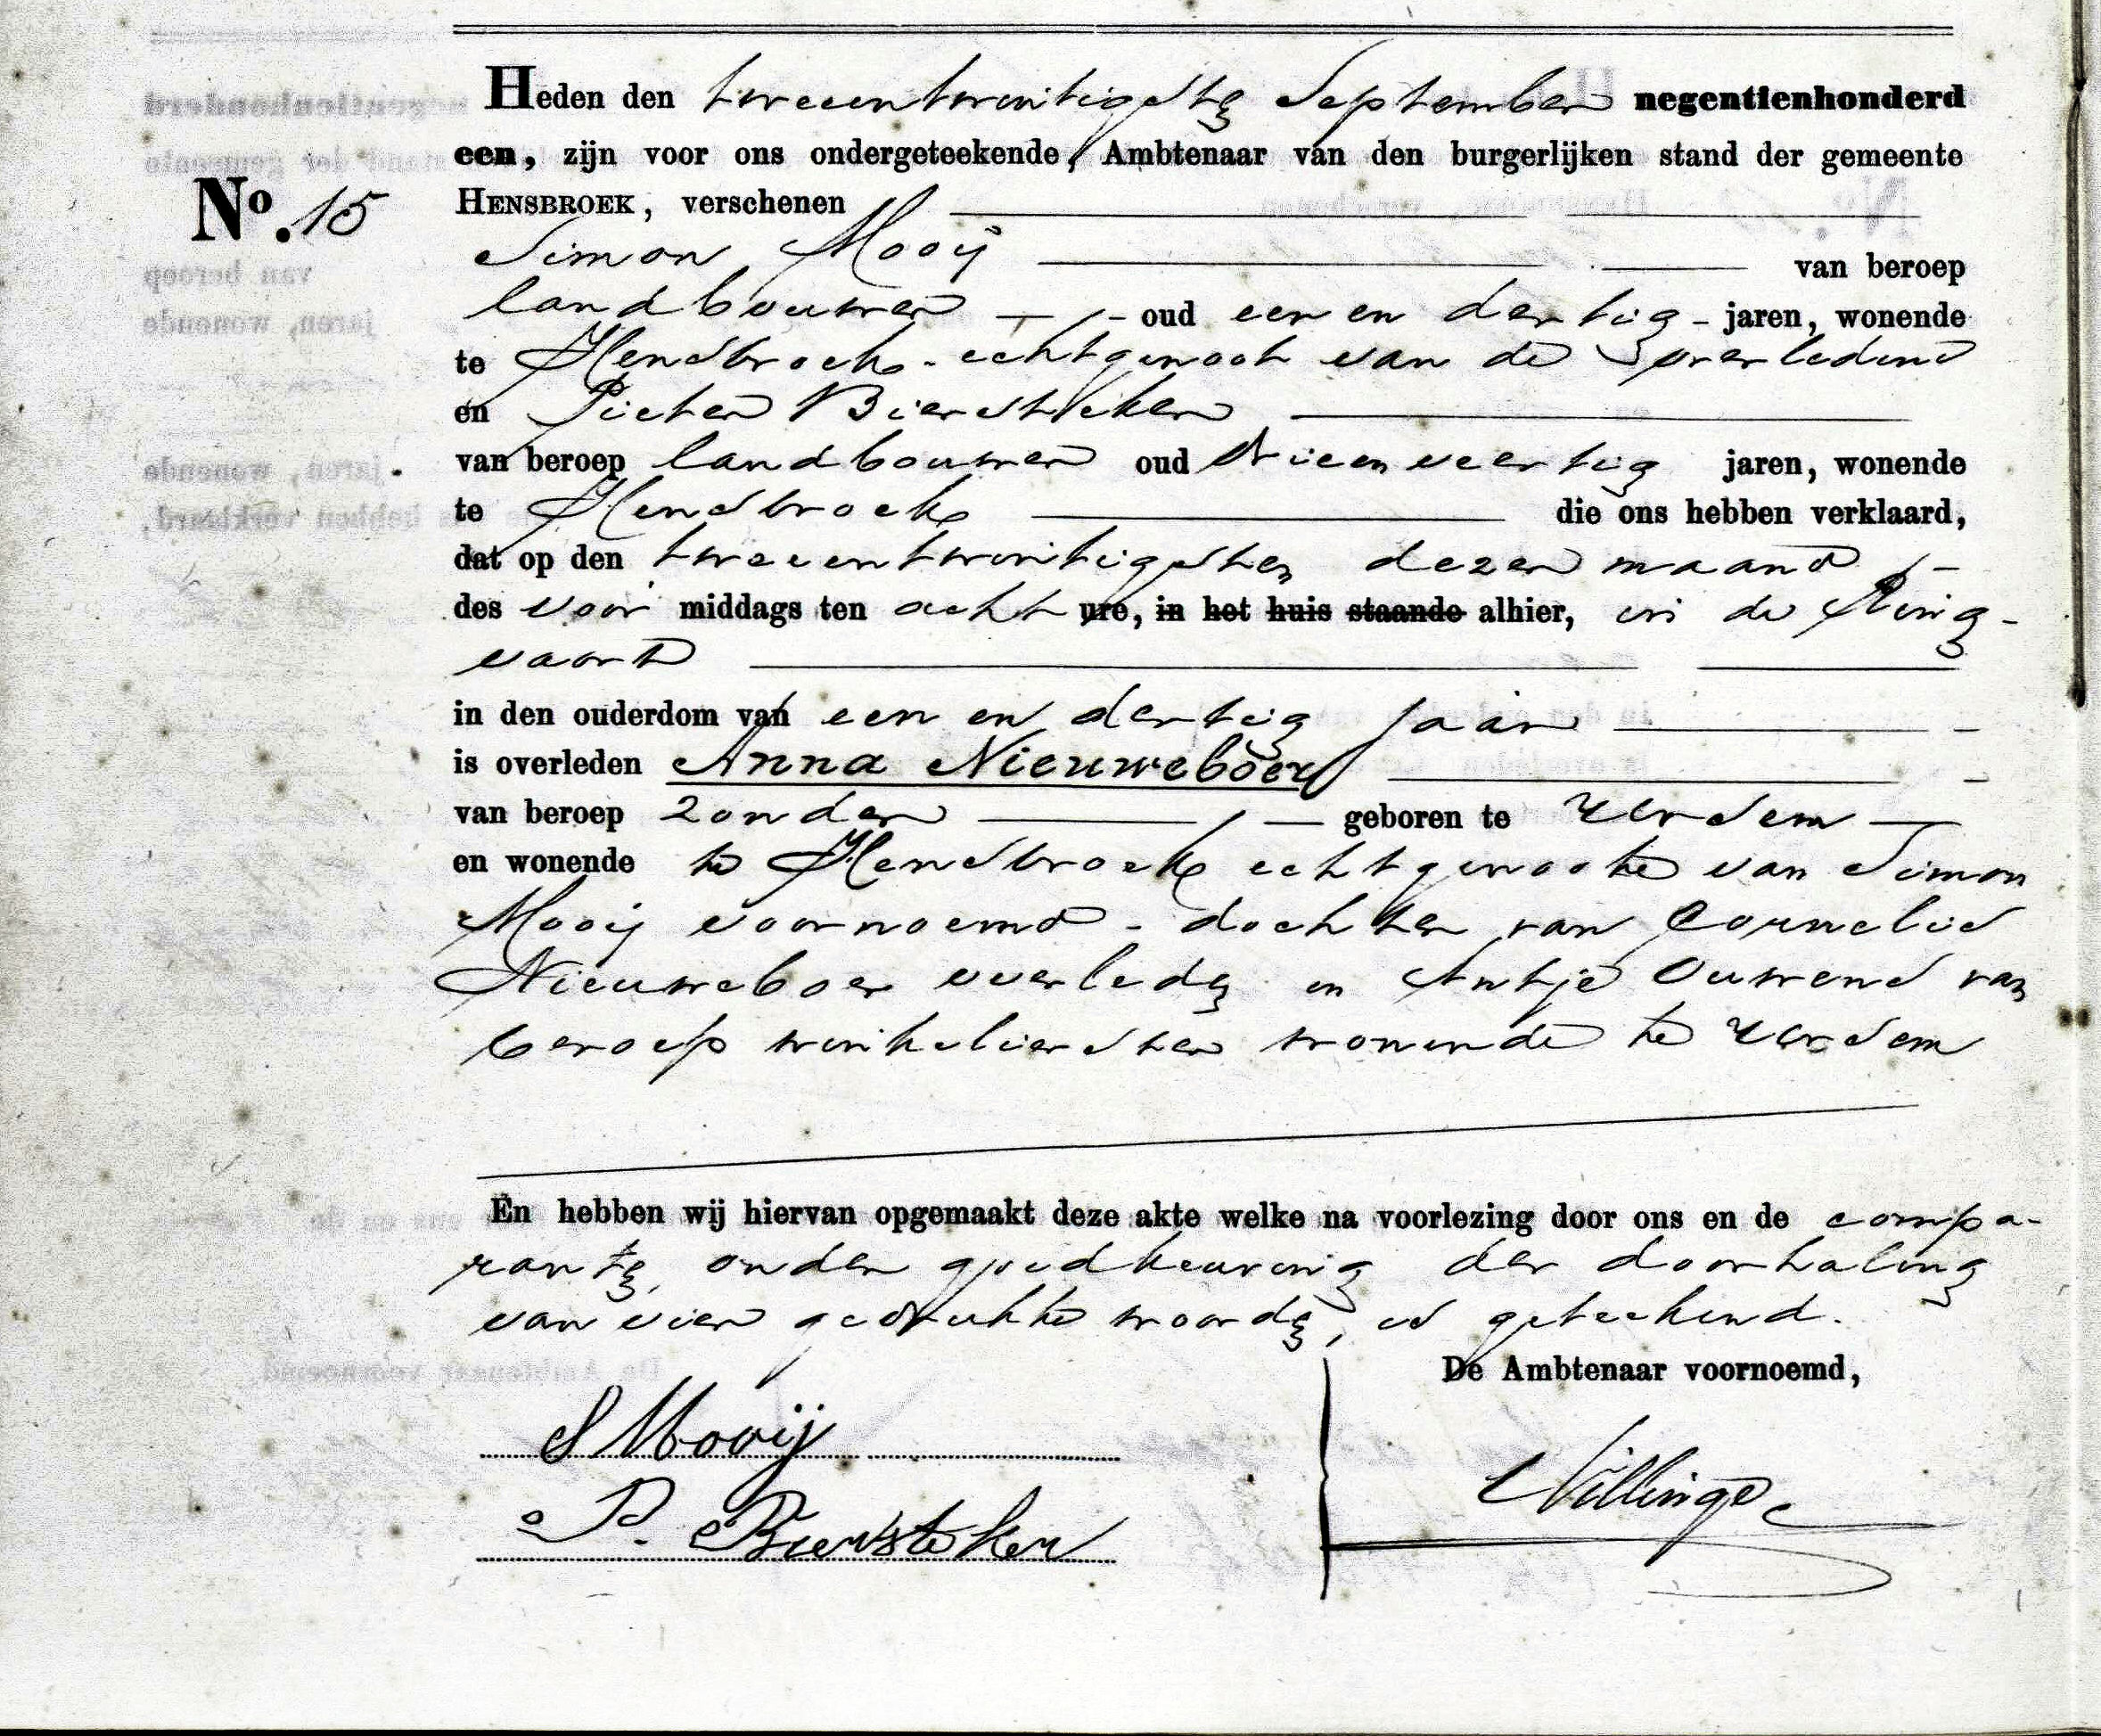 Heden den tweeentwintigste September negentienhonderd
een, zijn voor ons ondergeteekende, Ambtenaar van den burgerlijken stand der gemeente
No. 15
HENSBROEK, verschenen
Simon Mooij van beroep
landbouwer oud een en dertig - jaren, wonende
te Hensbroek - echtgenoot van de overledene
en Pieter Biersteker
van beroep landbouwer oud drieenveertig jaren, wonende
te Hensbroek die ons hebben verklaard,
dat op den tweeentwintigsten dezer maand
des voor middags ten acht ure, in het huis staande alhier, in de Ring-
vaart
in den ouderdom van een en dertig jaar
is overleden Anna Nieuweboer
van beroep zonder geboren te Ursem
en wonende te Hensbroek echtgenoote van Simon
Mooij voornoemd - dochter van Cornelis
Nieuweboer overleden en Antje Ouwens van
beroep winkelierster wonende te Ursem
En hebben wij hiervan opgemaakt deze akte welke na voorlezing door ons en de compa-
ranten, onder goedkeuring der doorhaling
van vier gedrukte woorden, is geteekend.
De Ambtenaar voornoemd,
S Mooij
P. Biersteker
Willinge